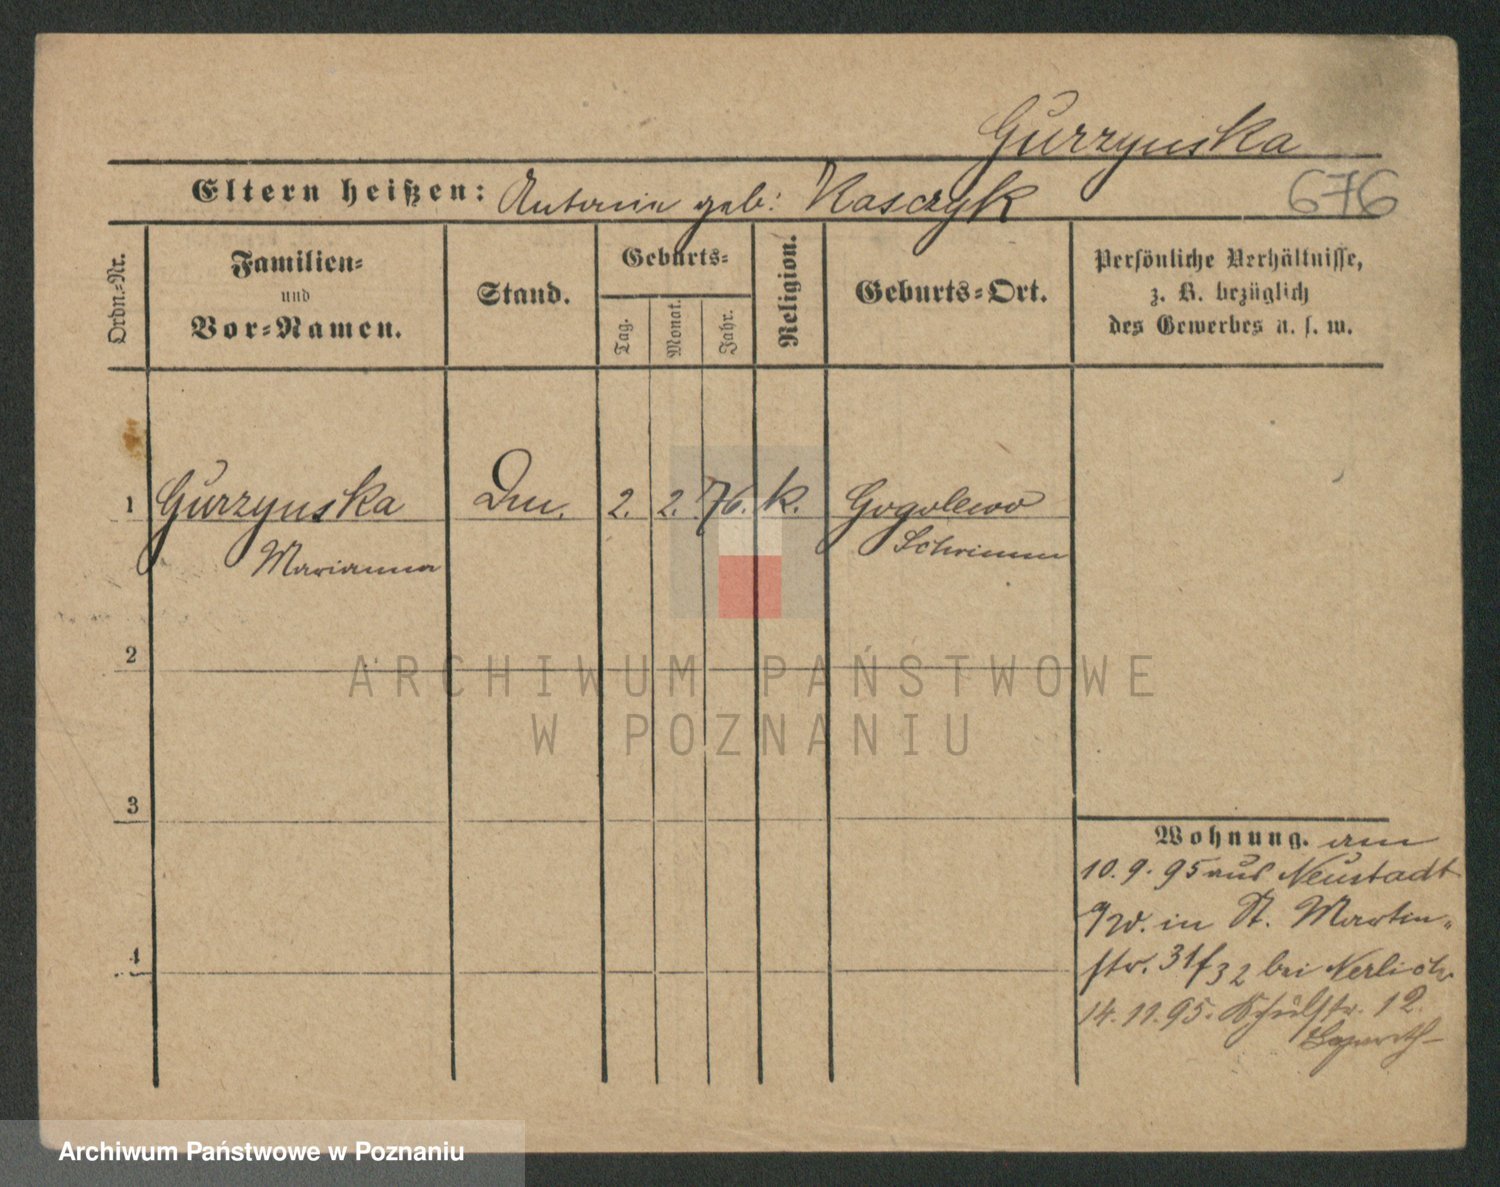 Gurzynska
Eltern heißen: Antonie geb: Kasczyk
676
Ordn.-Nr.
Familien-
und
Vor-Namen.
Stand.
Geburts-
Tag.
Monat.
Jahr.
Religion.
Geburts-Ort.
Persönliche Verhältnisse,
z. B. bezüglich
des Gewerbes u. s. w.
1 Gurzynska Dm. 2. 2. 76. k. Gogolewo
Marianna Schrimm
2
3
4
Wohnung. am
10.9.95 aus Neustadt
a/W. in St. Martin-
str. 31/32 bei Nerlich
14.11.95. Schulstr. 12.
ARCHIWUM PAŃSTWOWE
W POZNANIU
Archiwum Państwowe w Poznaniu